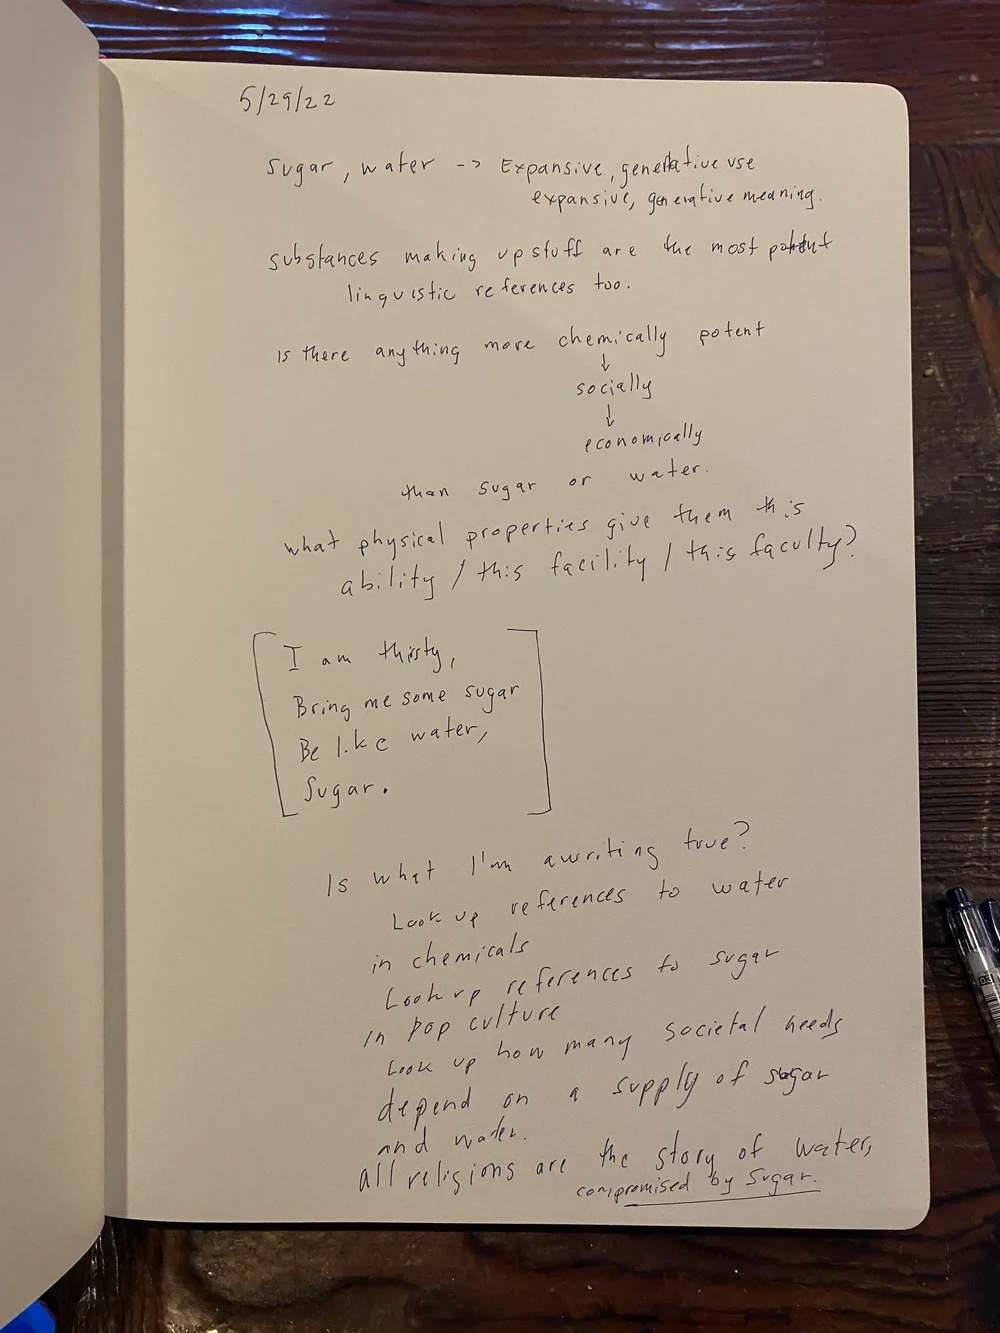 5/29/22
Sugar, water -> Expansive, generative use
expansive, generative meaning.
substances making up stuff are the most potent
linguistic references too.
Is there anything more chemically potent
↓
socially
↓
economically
than sugar or water.
what physical properties give them this
ability / this facility / this faculty?
I am thirsty,
Bring me some sugar
Be like water,
Sugar.
Is what I'm awriting true?
Look up references to water
in chemicals
Look up references to sugar
in pop culture
Look up how many societal needs
depend on a supply of sugar
and water.
all religions are the story of water,
compromised by sugar.